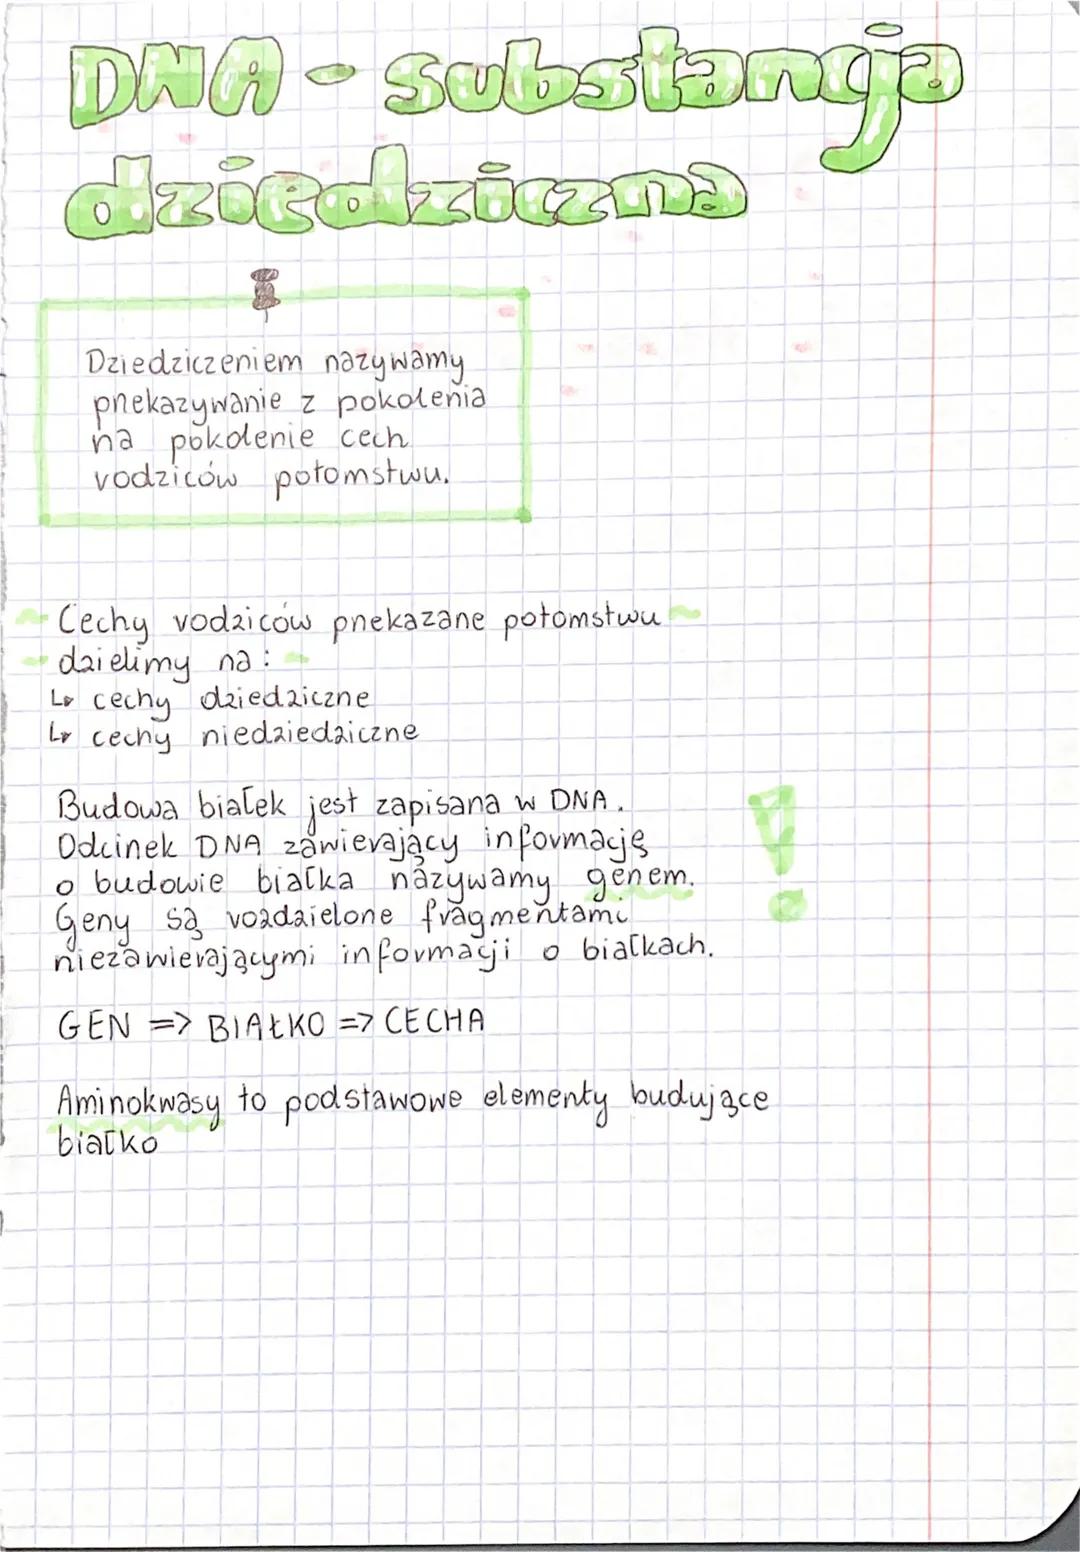 DNA - substancja
dziedziczna
Dziedziczeniem nazywamy
przekazywanie z pokolenia
na pokolenie cech
rodziców potomstwu.
Cechy rodziców przekazane potomstwu
dzielimy na:
↳ cechy dziedziczne
↳ cechy niedziedziczne
Budowa białek jest zapisana w DNA.
Odcinek DNA zawierający informację
o budowie białka nazywamy genem.
Geny są rozdzielone fragmentami
niezawierającymi informacji o białkach.
!
GEN => BIAŁKO => CECHA
Aminokwasy to podstawowe elementy budujące
białko